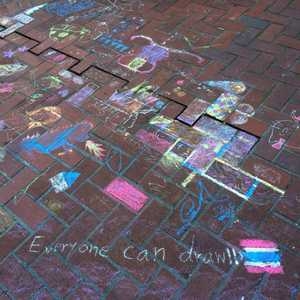 Everyone can draw!!!